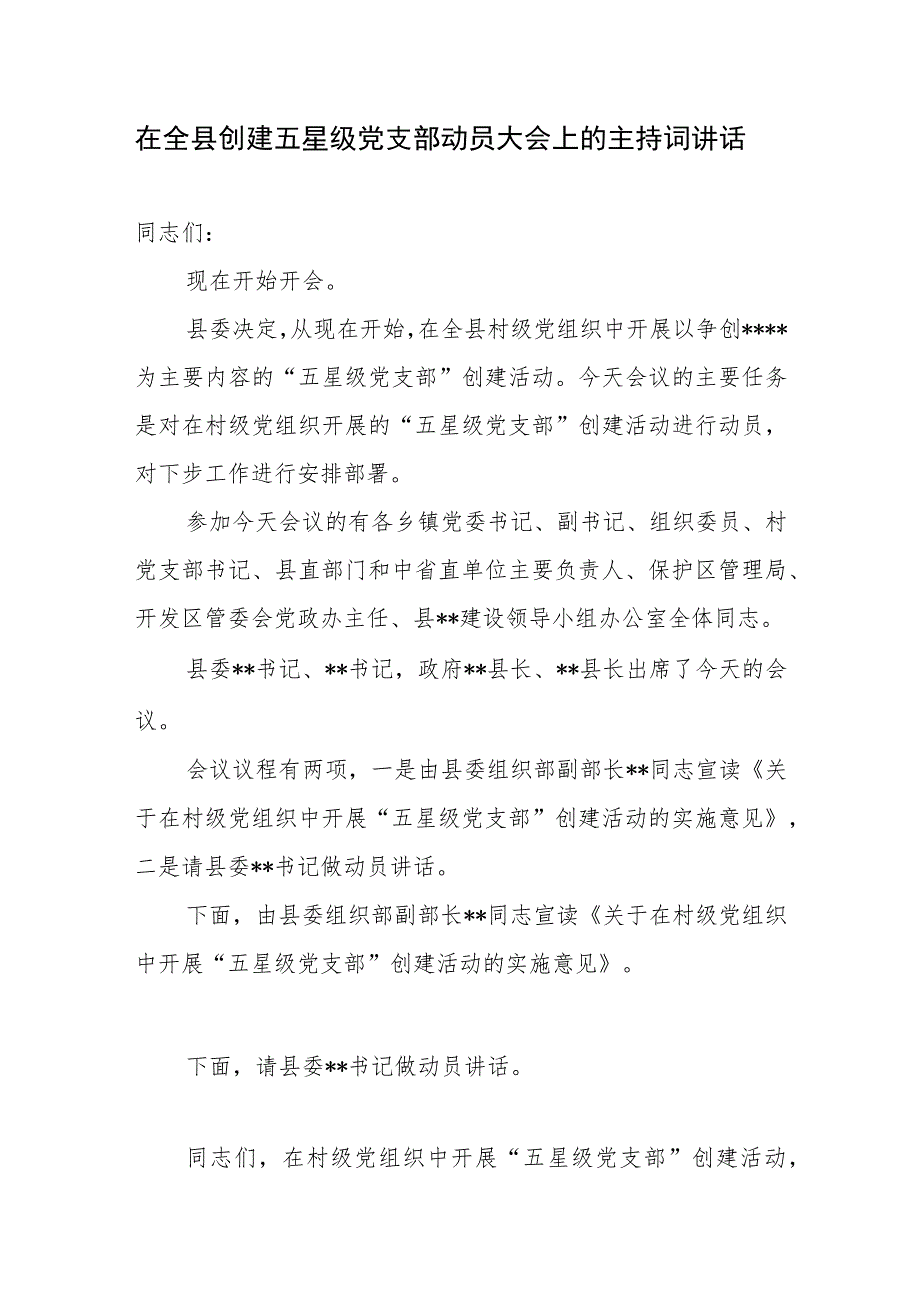 在全县创建五星级党支部动员大会上的主持词讲话
同志们：
现在开始开会。
县委决定，从现在开始，在全县村级党组织中开展以争创****
为主要内容的“五星级党支部”创建活动。今天会议的主要任务
是对在村级党组织开展的“五星级党支部”创建活动进行动员，
对下步工作进行安排部署。
参加今天会议的有各乡镇党委书记、副书记、组织委员、村
党支部书记、县直部门和中省直单位主要负责人、保护区管理局、
开发区管委会党政办主任、县**建设领导小组办公室全体同志。
县委**书记、**书记，政府**县长、**县长出席了今天的会
议。
会议议程有两项，一是由县委组织部副部长**同志宣读《关
于在村级党组织中开展“五星级党支部”创建活动的实施意见》，
二是请县委**书记做动员讲话。
下面，由县委组织部副部长**同志宣读《关于在村级党组织
中开展“五星级党支部”创建活动的实施意见》。
下面，请县委**书记做动员讲话。
同志们，在村级党组织中开展“五星级党支部”创建活动，